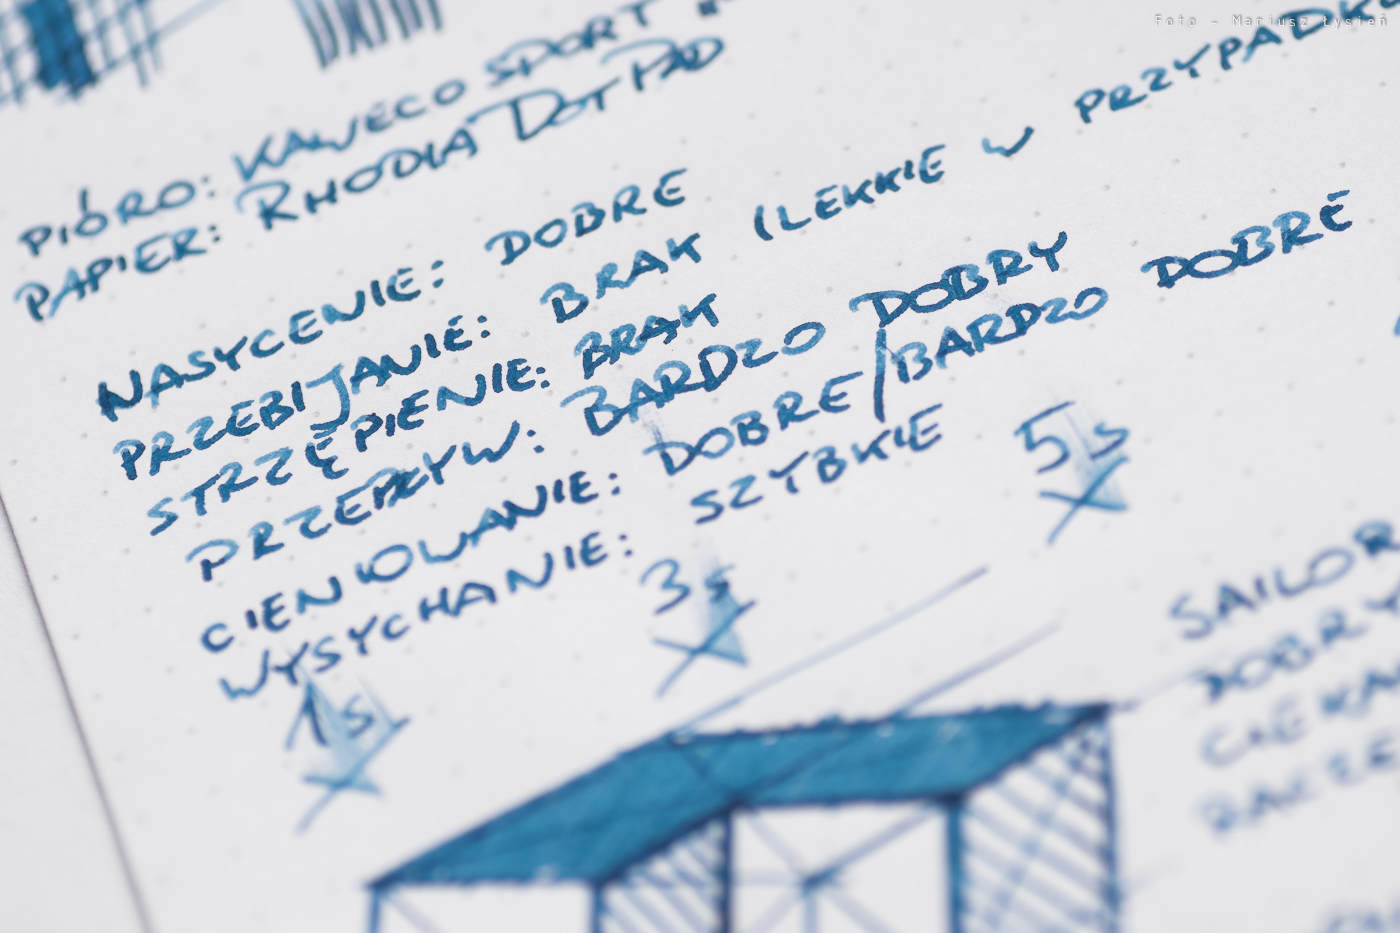 Foto - Mariusz Łysień
PIÓRO: KAWECO SPORT
PAPIER: RHODIA DOTPAD
NASYCENIE: DOBRE
PRZEBIJANIE: BRAK (LEKKIE W PRZYPADK
STRZĘPIENIE: BRAK
PRZEPŁYW: BARDZO DOBRY
CIENIOWANIE: DOBRE/BARDZO DOBRE
WYSYCHANIE: SZYBKIE
1s 3s 5s
SAILOR
DOBRY